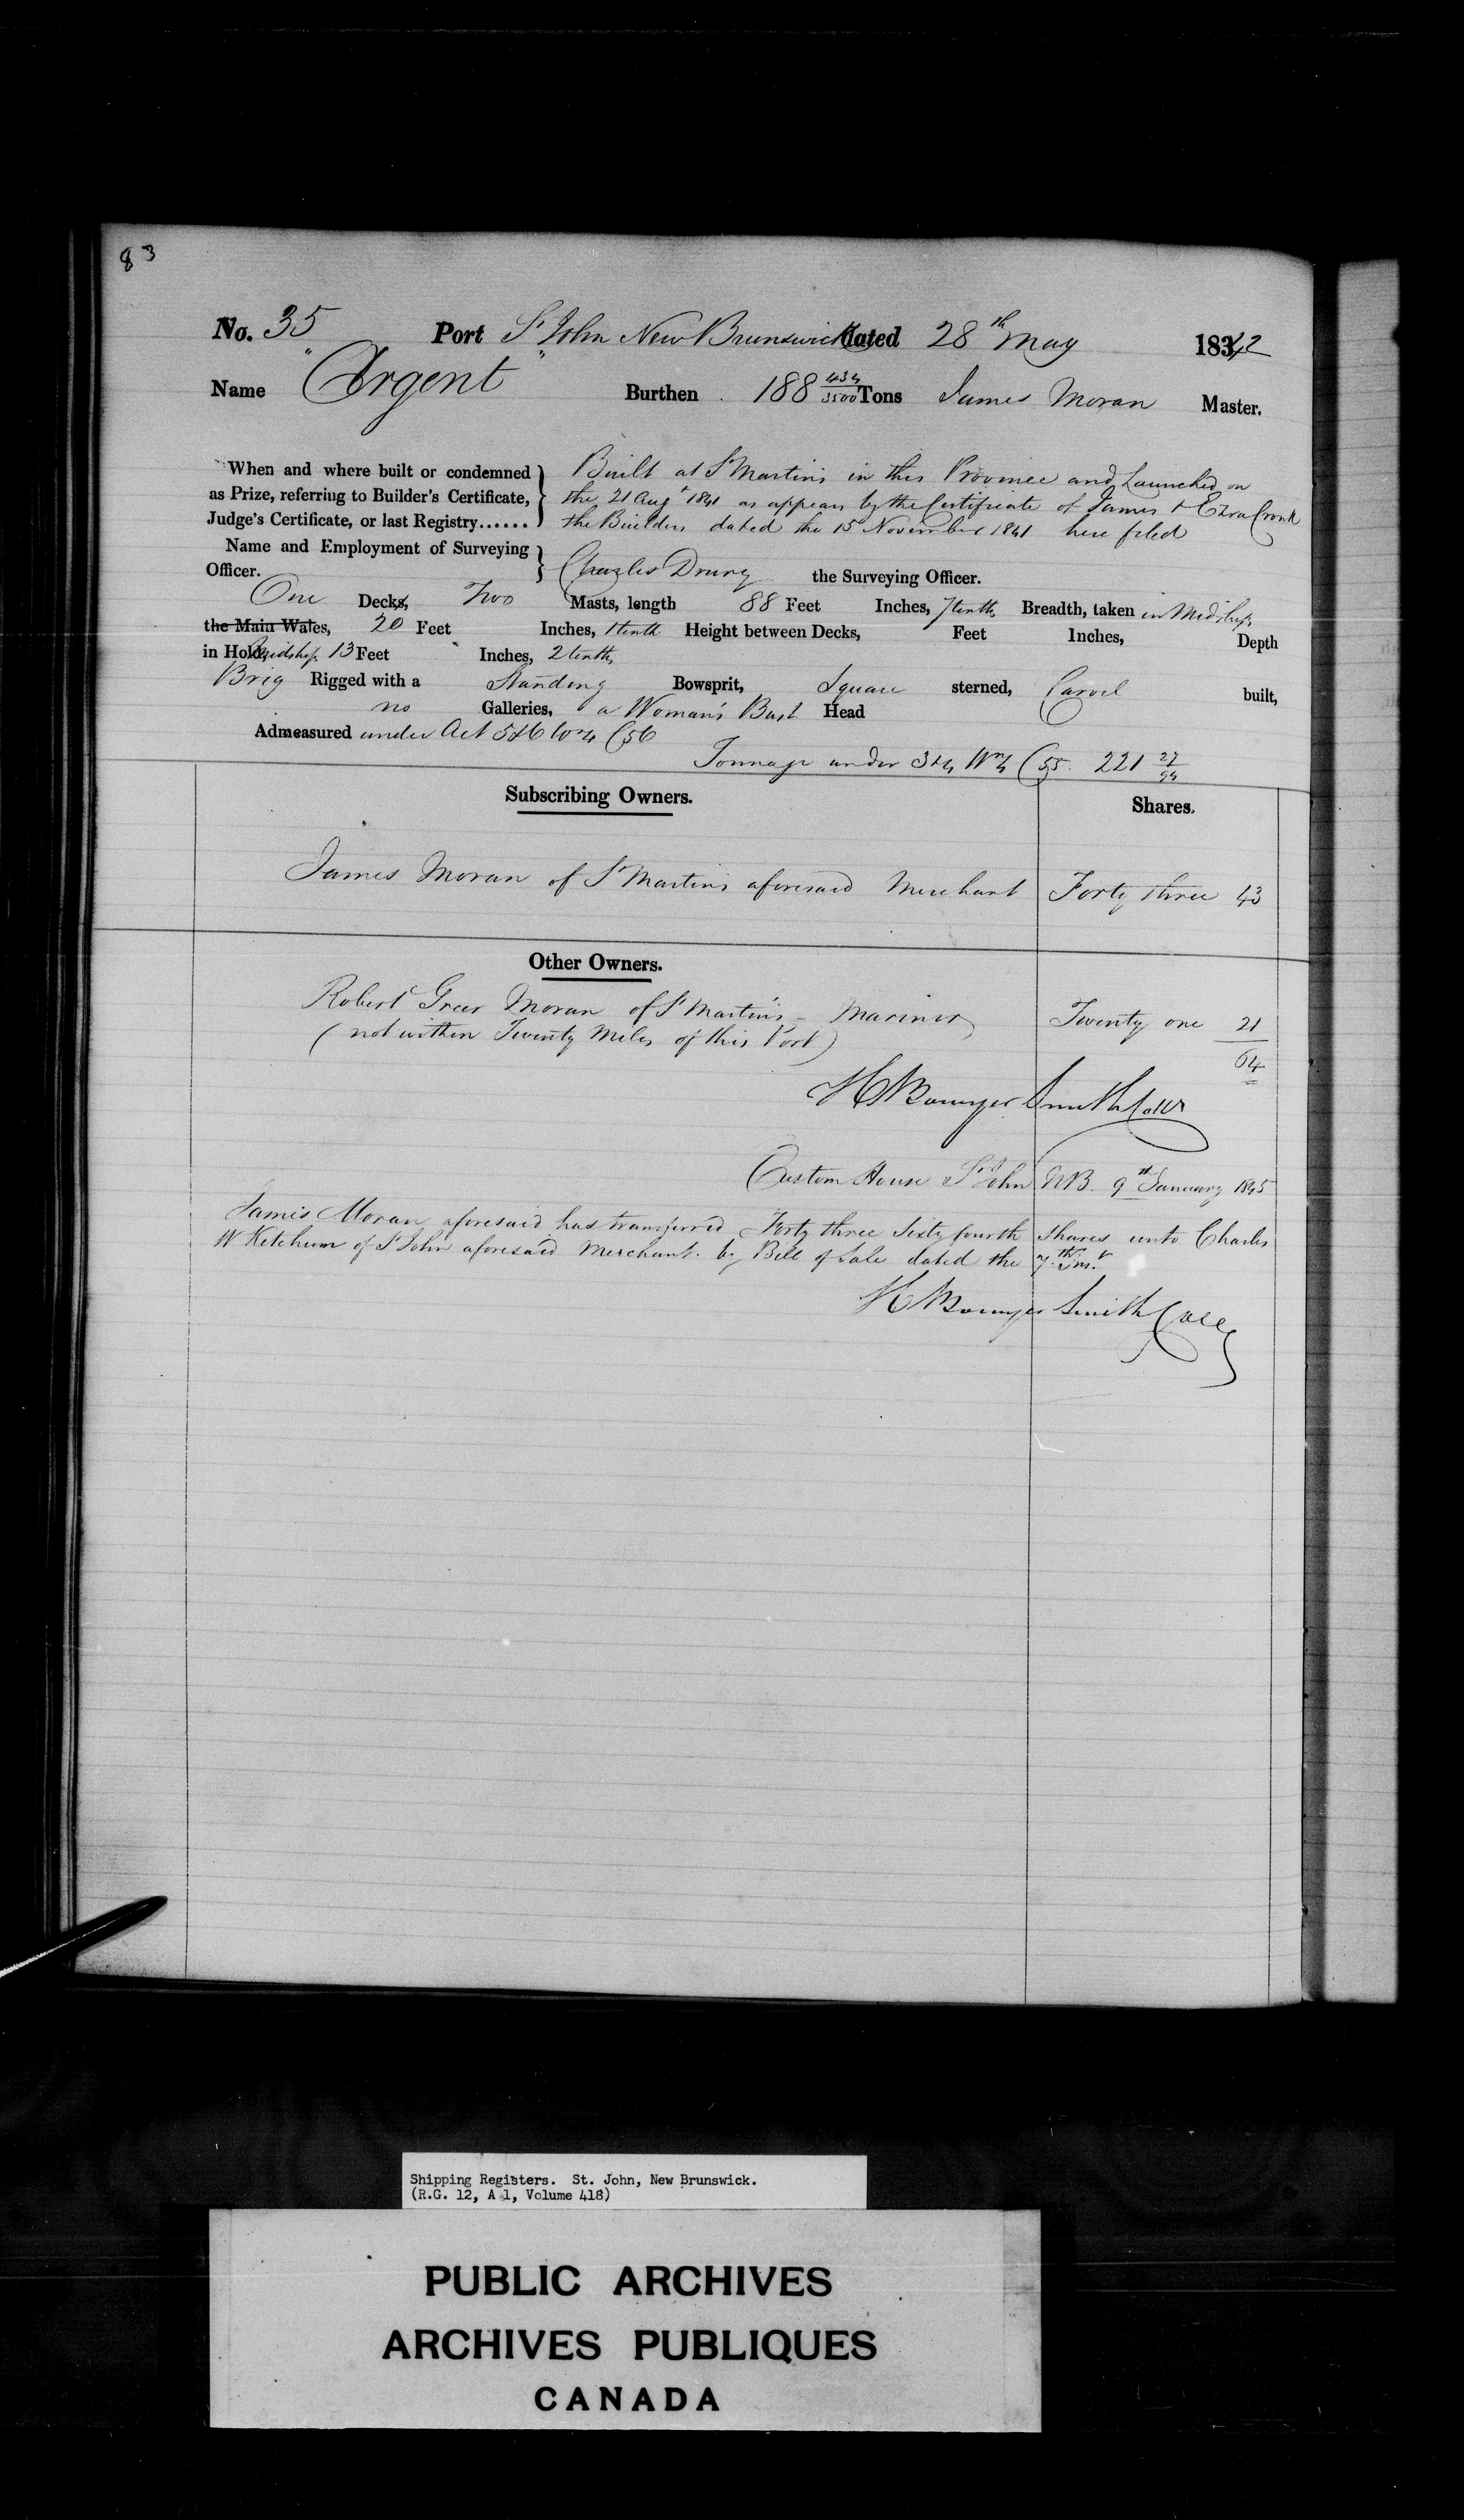 83
No. 35 Port St John New Brunswick dated 28th May 1842
Name "Argent" Burthen 188 434/3500 Tons James Moran Master.
When and where built or condemned Built at St Martins in this Province and Launched on
as Prize, referring to Builder's Certificate, the 21 Augt 1841 as appears by the Certificate of James & Ezra Cronk
Judge's Certificate, or last Registry...... the Builders dated the 15 November 1841 here filed
Name and Employment of Surveying
Officer. Charles Drury the Surveying Officer.
One Decks, Two Masts, length 88 Feet Inches, 7 tenths Breadth, taken in Midships
the Main Wales, 20 Feet Inches, 1 tenth Height between Decks, Feet Inches, Depth
in Hold, Midships 13 Feet Inches, 2 tenths
Brig Rigged with a Standing Bowsprit, Square sterned, Carvel built,
no Galleries, a Woman's Bust Head
Admeasured under Act 5&6 Wm 4 C56
Tonnage under 3&4 Wm 4 C55. 221 27/94
Subscribing Owners. Shares.
James Moran of St Martins aforesaid Merchant Forty three 43
Other Owners.
Robert Greer Moran of St Martins - Mariner Twenty one 21
(not within Twenty Miles of this Port) 64
H Bowyer Smith Collr
Custom House St John NB. 9th January 1845
James Moran aforesaid has transferred Forty three Sixty fourth Shares unto Charles
W Ketchum of St John aforesaid Merchant. by Bill of Sale dated the 7th Inst
H Bowyer Smith Coll
Shipping Registers. St. John, New Brunswick.
(R.G. 12, A 1, Volume 418)
PUBLIC ARCHIVES
ARCHIVES PUBLIQUES
CANADA